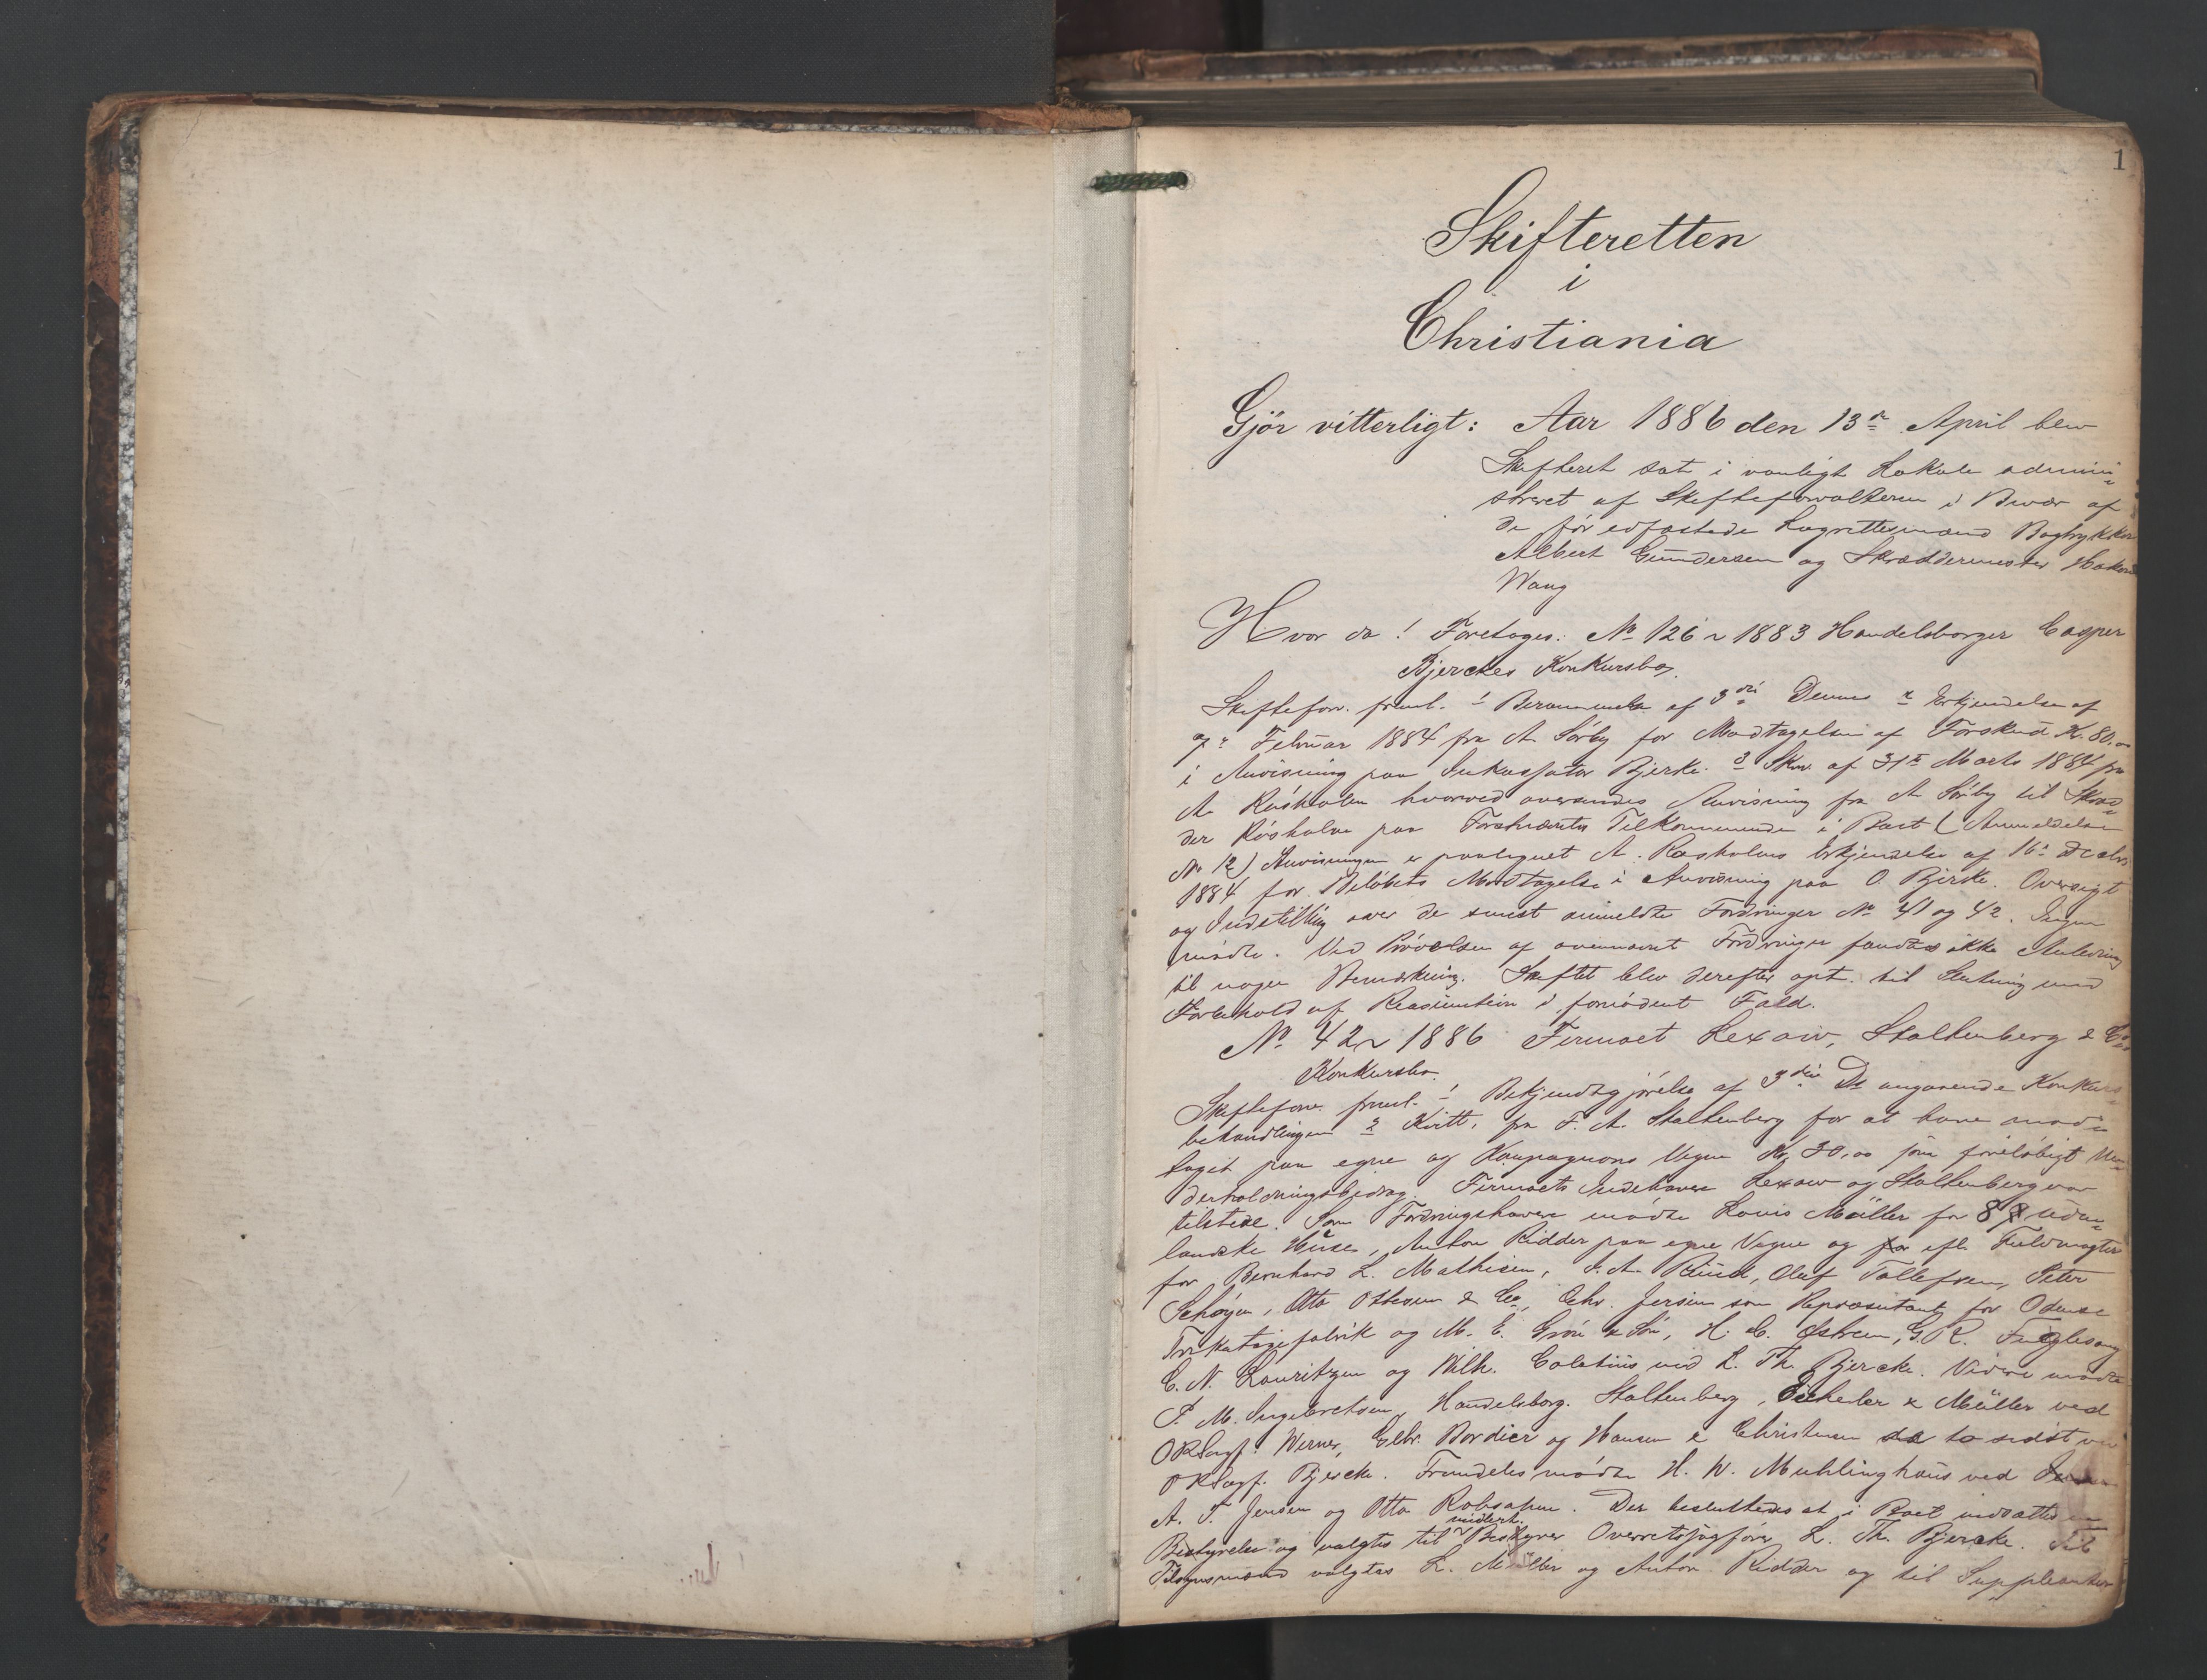 1
Skifteretten
i
Christiania
Gjör vitterligt: Aar 1886 den 13de April blev
Skifteret sat i vanligt Lokale admini-
streret af Skifteforvalteren i Overvær af
de för edfæstede Lagrettesmænd Bogtrykker
Albert Gundersen og Skræddermester Haakon
Wang
Hvor da! Foretoges: No 126 1883 Handelsborger Casper
Bjerckes Konkursbo.
Skifteforv. freml. 1 Berammelse af 3die Dennes 2 Erkjendelse af
7 Februar 1884 fra A. Sörby for Modtagelsen af Forskud K. 80.00
i Anvisning paa Inkassator Bjerke. 3 Skr. af 31te Marts 1884 fra
A. Röskolen hvorved oversendes Anvisning fra A. Sörby til Skræd-
der Röskolen paa Tilkommende i Boet (Anmeldelse
No 12) Anvisningen er paategnet A. Röskolens Erkjendelse af 16
1884 for Belöbets Modtagelse i Anvisning paa O. Bjerke. Oversigt
og Indstilling over de senest anmeldte Fordringer No 41 og 42. Ingen
mödte. Ved Prövelsen af ovennævnt Fordringer fandtes ikke Anledning
til nogen Bemærkning. Skiftet blev derefter opt. til Slutning med
Forbehold af Reasumtion i fornödent Fald.
No 42 1886 Firmaet Lexow, Stoltenberg & Co
Konkursbo.
Skifteforv. freml. 1 Bekjendtgjörelse af 3die Ds angaaende Konkurs-
behandlingen 2 Kvitt. fra F. A. Stoltenberg for at have mod-
taget paa egne og Kompagnons Vegne Kr. 30,00 som foreløbigt Un-
derholdningsbidrag. Firmaets Indehavere Lexow og Stoltenberg var
tilstede. Som Fordringshavere mödte Louis Müller for 8 uden-
landske Huse, Anton Ridder paa egne Vegne og efter Fuldmagter
for Bernhard L. Mathisen, J. A. Ruud, Oluf Tollefsen, Peter
Schöyen, Otto Ottesen & Co, Chr. Jersin som Repræsentant for Odense
Trikotagefabrik og M. E. Grön & Sön, H. C. Østrem, G. R. Fuglesang
C. N. Lauritzen og Wilh. Coletius ved L. Th. Bjercke. Videre mödte
P. M. Ingebretsen, Handelsborg. Stoltenberg, & Müller ved
ORSagf. Werner, Gebr. Bordier og Hansen & Christensen de to sidst ved
ORSagf. Bjercke. Fremdeles mödte H. W. Muhlinghaus ved
A. T. Jensen og Otto Robsahm. Der besluttedes at i Boet indsattes en
midlert.
Bestyrelse og valgtes til Bestyrer Overretssagförer L. Th. Bjercke. Til
Tilsynsmænd valgtes L. Müller og Anton Ridder og til Suppleanter